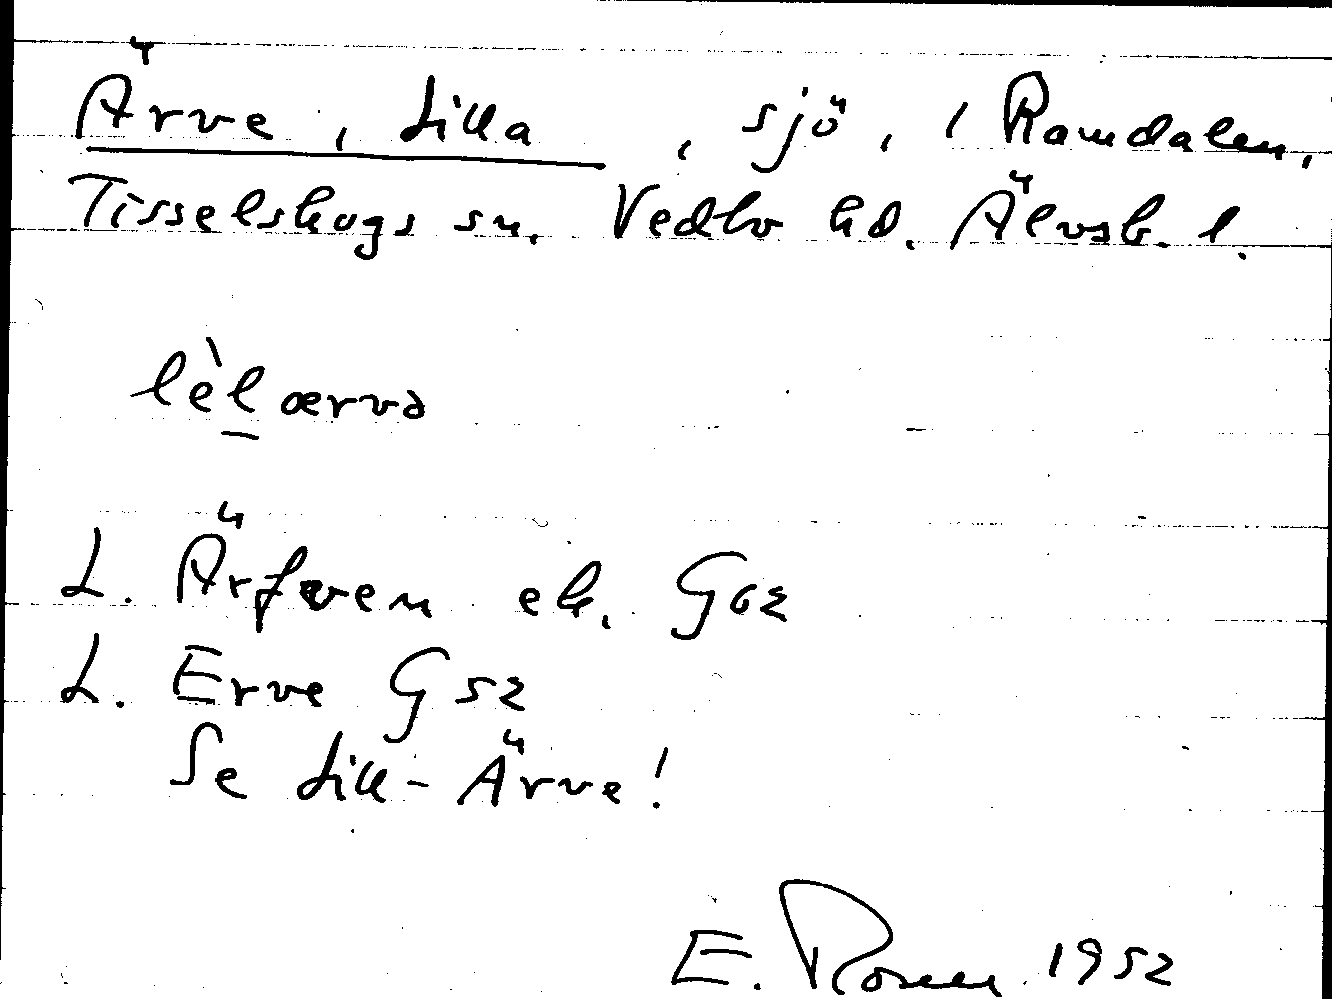 Ärve, Lilla, sjö, i Ramdalen,
Tisselskogs sn. Vedbo hd. Älvsb. l.
lèl ærvə
L. Ärfven ek. G62
L. Erve G52
Se Lill-Ärve!
E. Rosell 1952